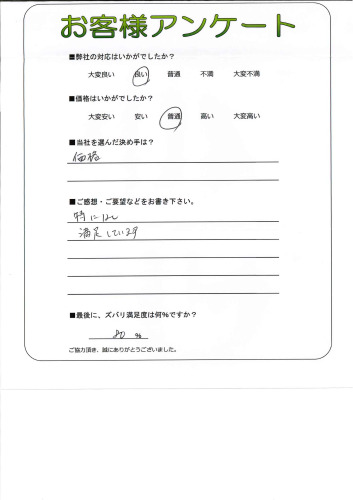 お客様アンケート
■弊社の対応はいかがでしたか？
大変良い 良い 普通 不満 大変不満
■価格はいかがでしたか？
大変安い 安い 普通 高い 大変高い
■当社を選んだ決め手は？
価格
■ご感想・ご要望などをお書き下さい。
特になし
満足しています
■最後に、ズバリ満足度は何％ですか？
80 %
ご協力頂き、誠にありがとうございました。